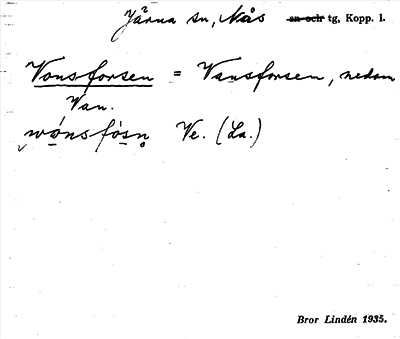 Järna sn, Nås sn och tg, Kopp. l.
Vonsforsen = Vansforsen, nedom
Van.
wó̱nsfȯ́sn̥ Ve. (La.)
Bror Lindén 1935.